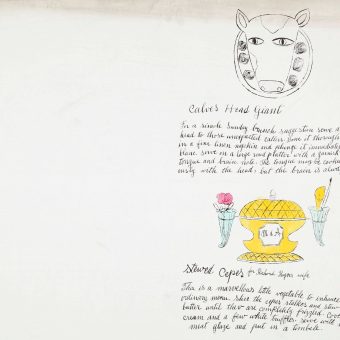 Calves Head Giant
For a simple Sunday brunch suggestion serve a
head to those unexpected callers. Bone it thorough
in a fine linen napkin and plunge it immediately
blanc. serve in a large oval platter with a garnish
tongue and brain sides. The tongue may be cooked
ously with the head, but the brain is alwa
M & A
stewed Cepes for Richard Hagen's wife
This is a marvellous little vegetable to enhance
ordinary menu. skin the cepes stalkers and stew
butter until they are completely frizzled. Coat
cream and a few white truffles. serve well
meat glaze and put in a timbale.